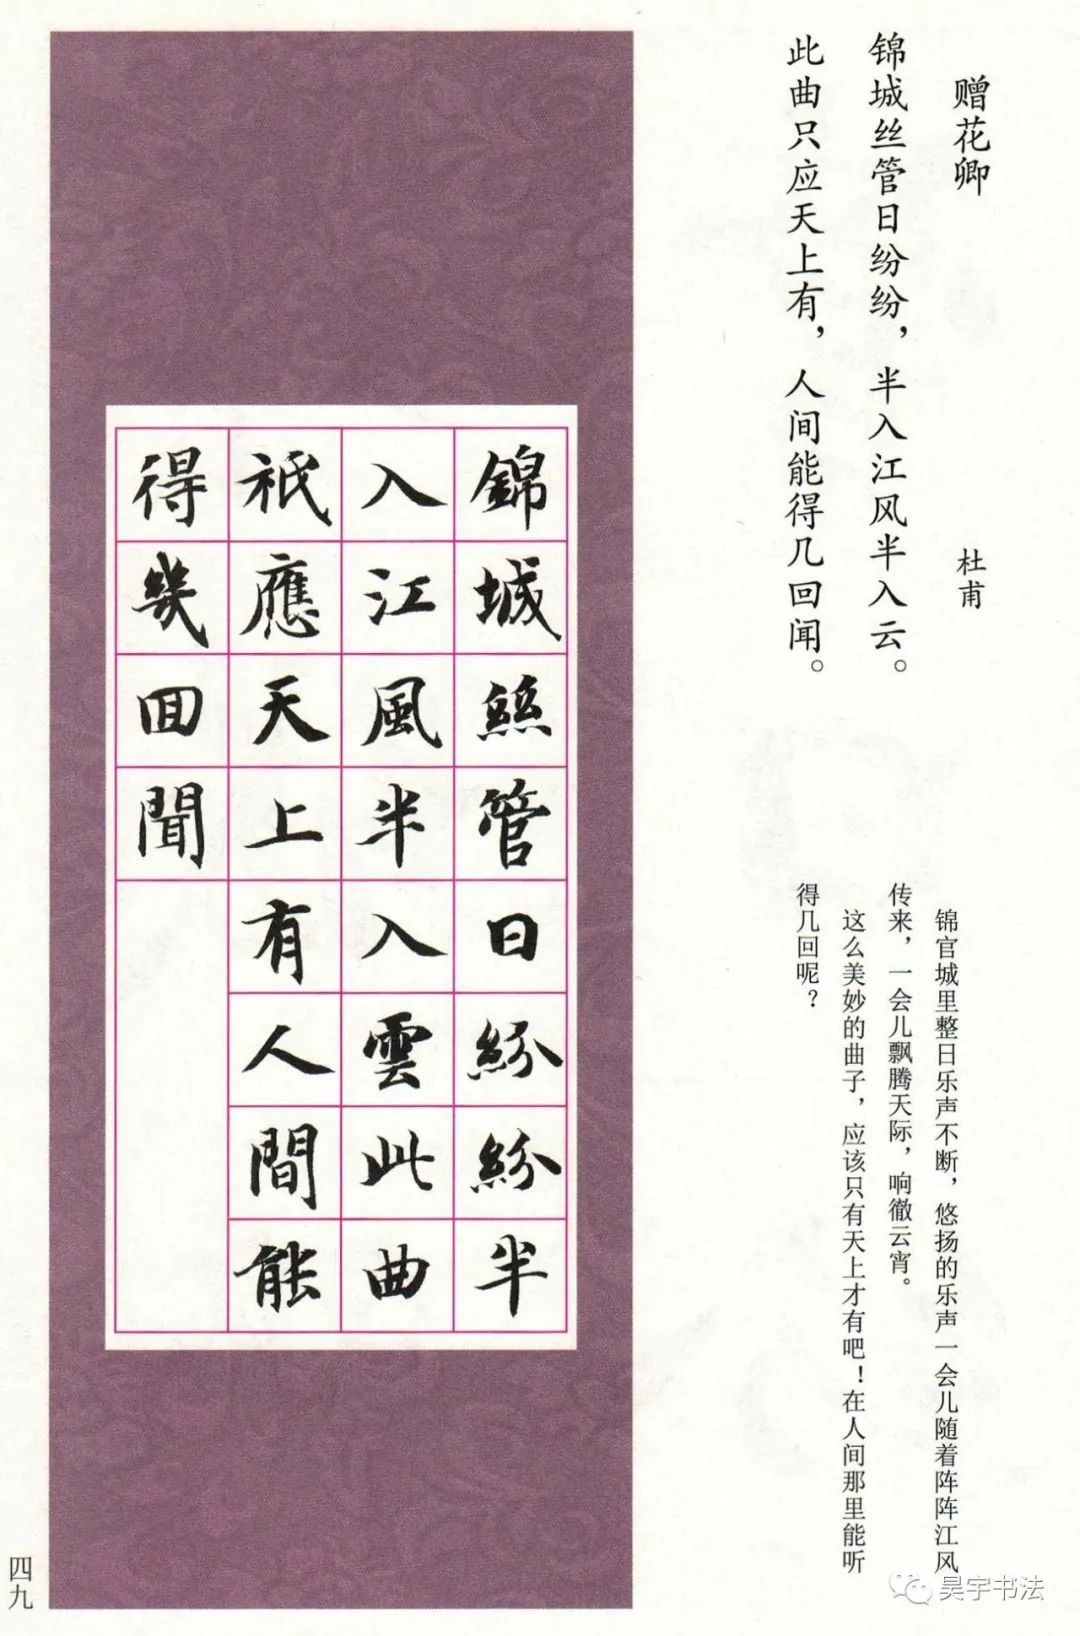 赠花卿
杜甫
锦城丝管日纷纷，半入江风半入云。
此曲只应天上有，人间能得几回闻。
锦官城里整日乐声不断，悠扬的乐声一会儿随着阵阵江风
传来，一会儿飘腾天际，响徹云宵。
这么美妙的曲子，应该只有天上才有吧！在人间那里能听
得几回呢？
錦城絲管日紛紛半
入江風半入雲此曲
祇應天上有人間能
得幾回聞
四九
昊宇书法